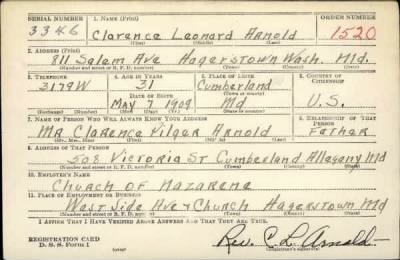 SERIAL NUMBER 1. NAME (Print) ORDER NUMBER
3346 Clarence Leonard Arnold 1520
(First) (Middle) (Last)
2. ADDRESS (Print)
811 Salem Ave Hagerstown Wash. Md.
(Number and street or R. F. D. number) (Town) (County) (State)
3. TELEPHONE 4. AGE IN YEARS 5. PLACE OF BIRTH 6. COUNTRY OF CITIZENSHIP
3179W 31 Cumberland
DATE OF BIRTH (Town or county)
May 7 1909 Md U.S.
(Exchange) (Number) (Mo.) (Day) (Yr.) (State or country)
7. NAME OF PERSON WHO WILL ALWAYS KNOW YOUR ADDRESS 8. RELATIONSHIP OF THAT PERSON
Mr Clarence Arnold Father
(Mr., Mrs., Miss) (First) (Middle) (Last)
9. ADDRESS OF THAT PERSON
508 Victoria St Cumberland Allegany Md
(Number and street or R. F. D. number) (Town) (County) (State)
10. EMPLOYER'S NAME
Church of Nazarene
11. PLACE OF EMPLOYMENT OR BUSINESS
West Side Ave & Church Hagerstown Md
(Number and street or R. F. D. number) (Town) (County) (State)
I AFFIRM THAT I HAVE VERIFIED ABOVE ANSWERS AND THAT THEY ARE TRUE.
REGISTRATION CARD
D. S. S. FORM 1 (over) Rev. C. L. Arnold
(Registrant's signature)